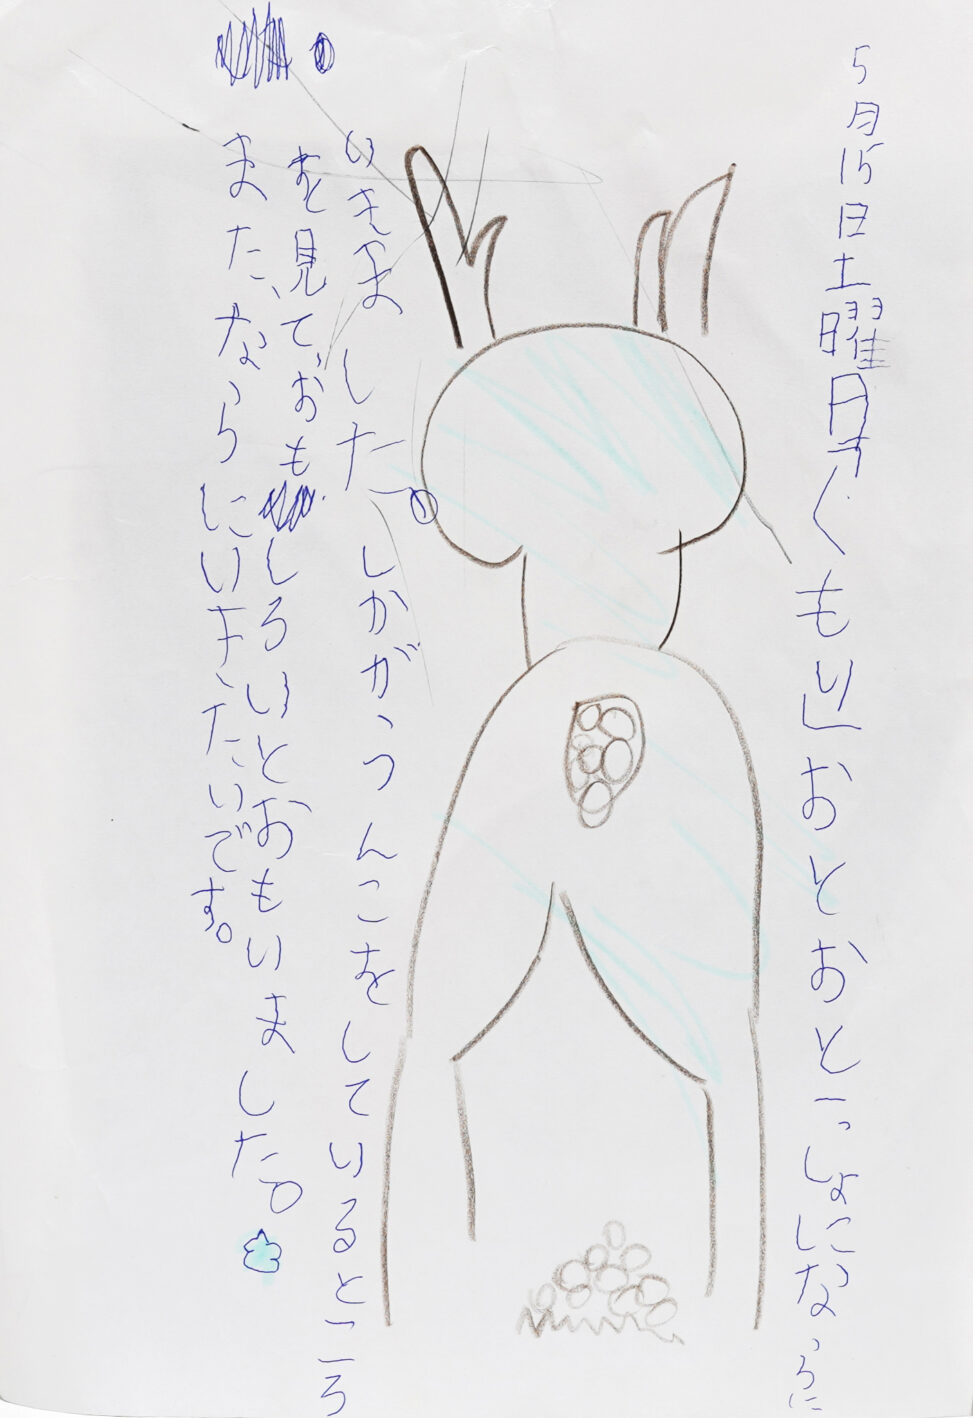 5月15日土曜日「くもり」おとおといっしょにならに
いきました。しかがうんこをしているところ
を見て、おもしろいとおもいました。
また、ならにいきたいです。